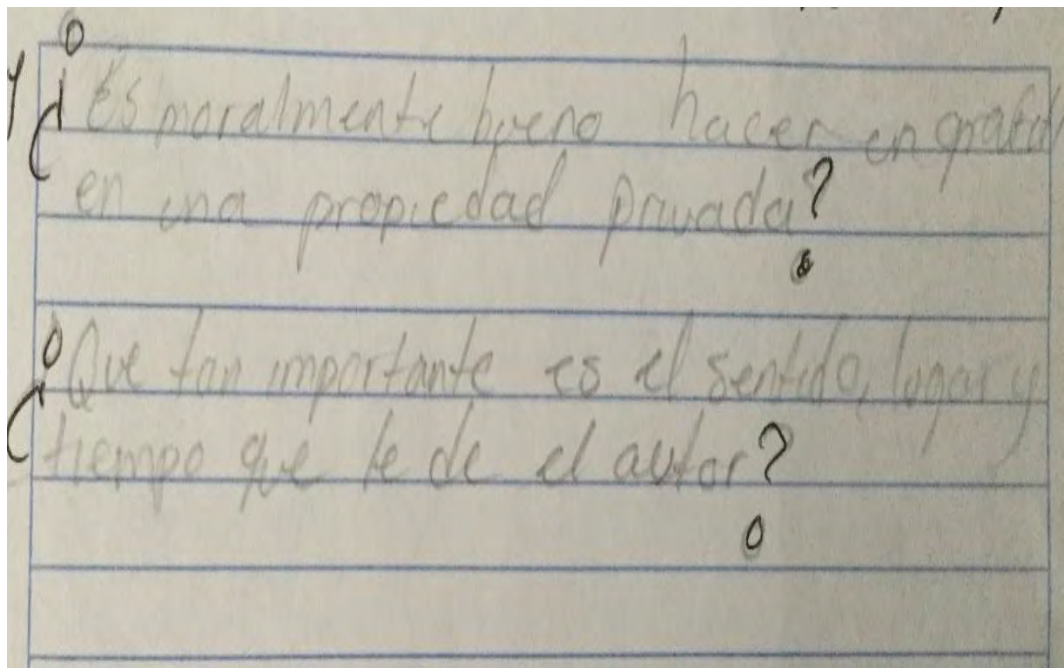 ¿Es moralmente bueno hacer en grafiti
en una propiedad privada?
¿Que tan importante es el sentido, lugar y
tiempo que le de el autor?